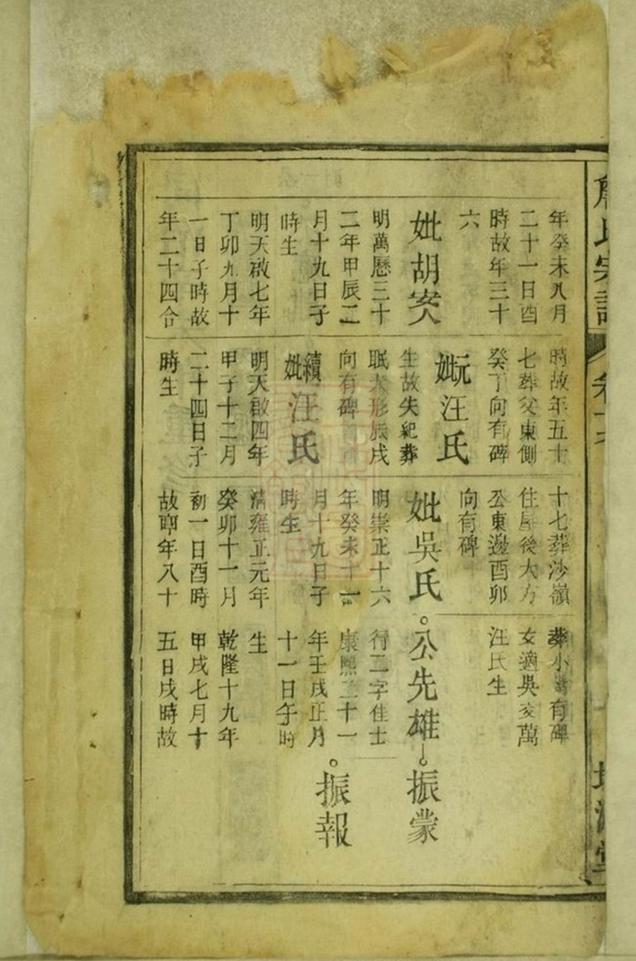 年癸未八月
二十一日酉
時故年三十
六
妣胡安人
明萬曆三十
二年甲辰二
月十九日子
時生
明天啟七年
丁卯九月十
一日子時故
年二十四合
時故年五十
七葬父東側
癸丁向有碑
妣元汪氏
生故失紀葬
眠犬形辰戌
向有碑
續妣汪氏
明天啟四年
甲子十二月
二十四日子
時生
十七葬沙嶺
住屋後大方
公東邊酉卯
向有碑
妣吳氏
明崇正十六
年癸未十一
月十九日子
時生
清雍正元年
癸卯十一月
初一日酉時
故年八十
葬小 有碑
女適吳 萬
汪氏生
公先雄
行二字佳士
康熙二十一
年壬戌正月
十一日午時
生
乾隆十九年
甲戌七月十
五日戌時故
振蒙
振報